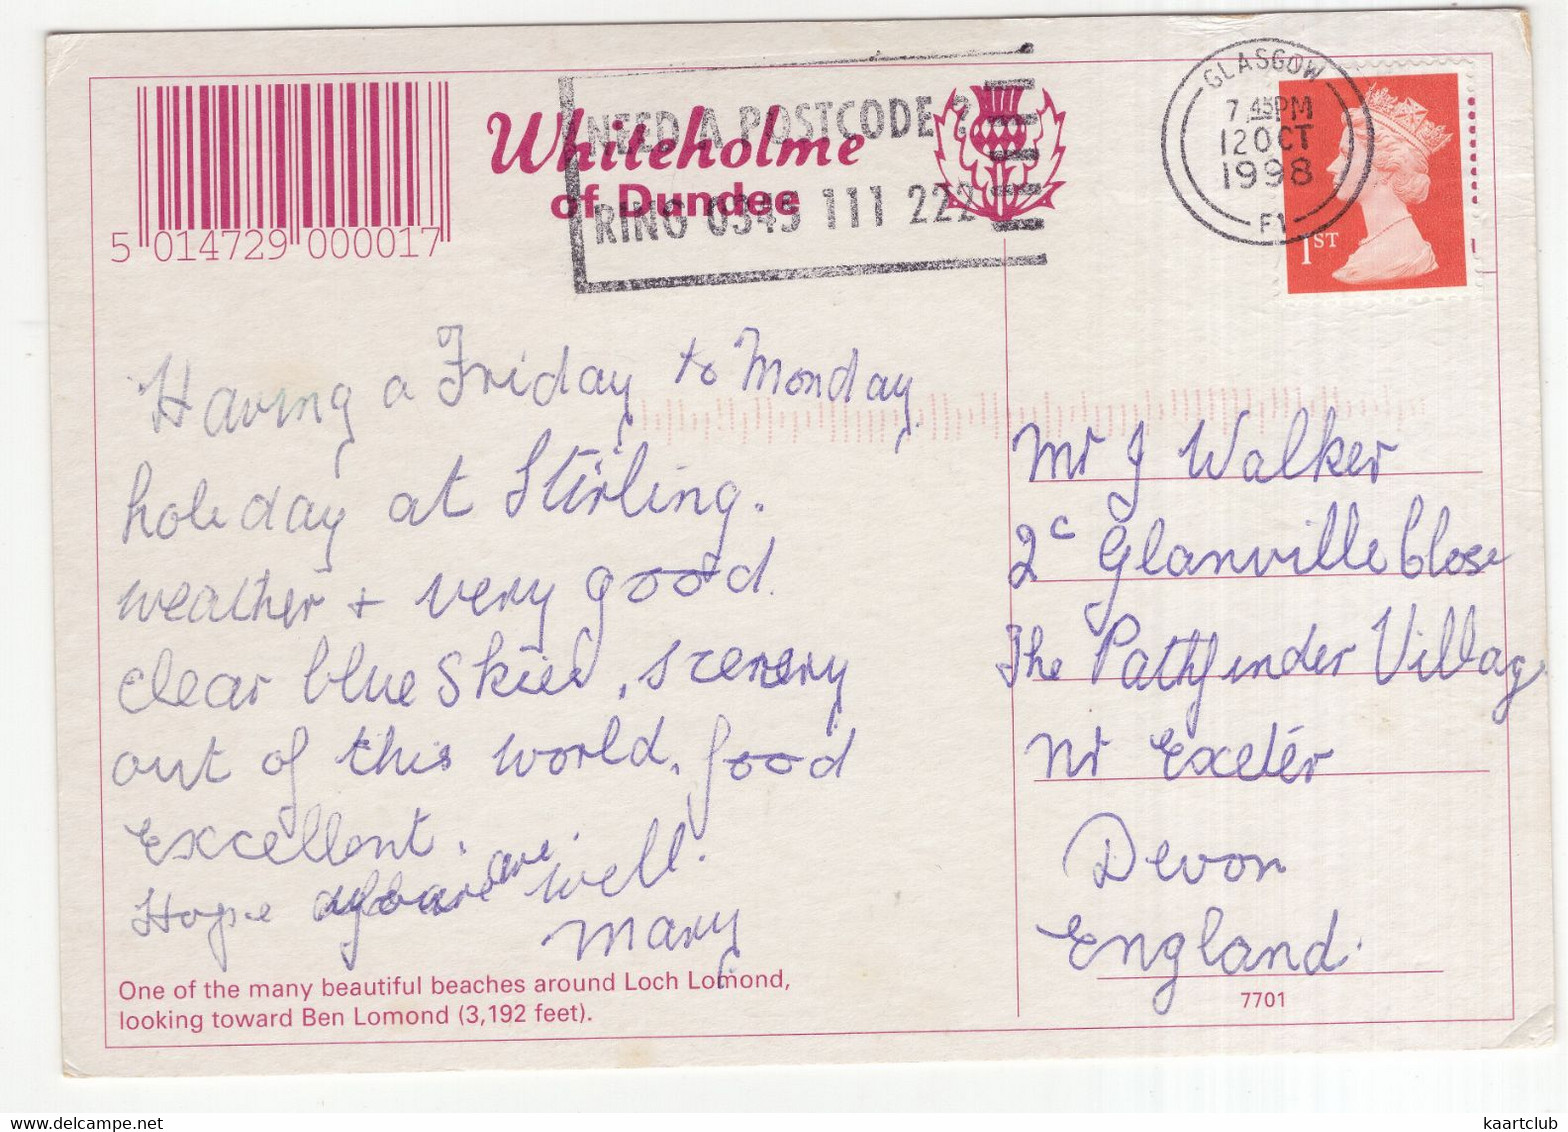 5 014729 000017
Whiteholme
of Dundee
NEED A POSTCODE ?
RING 0345 111 222
GLASGOW
7.45PM
12 OCT
1998
F1
1ST
Having a Friday to Monday
holiday at Stirling.
weather + very good.
clear blue skies, scenery
out of this world, food
Excellent.
Hope are well.
Mary
One of the many beautiful beaches around Loch Lomond,
looking toward Ben Lomond (3,192 feet).
Mr J Walker
2c Glanville Close
The Pathfinder Village
Nr Exeter
Devon
England.
7701
kaartclub